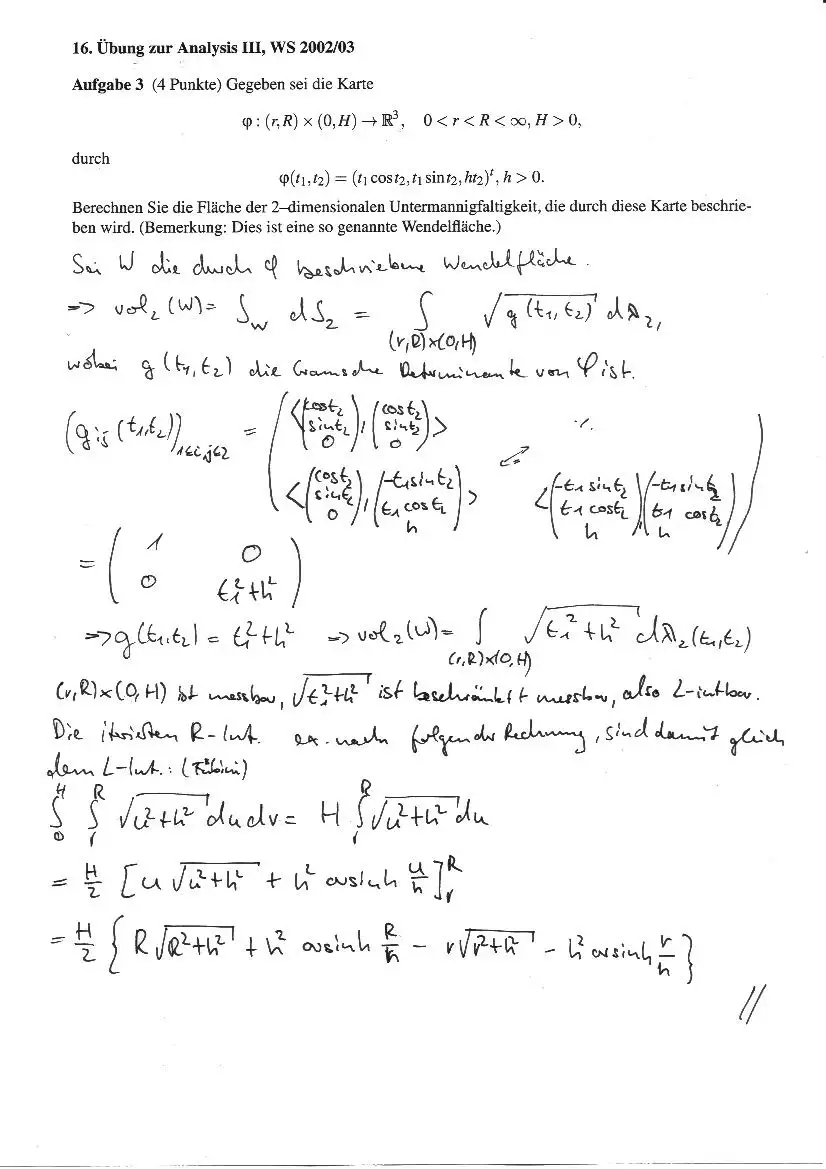 16. Übung zur Analysis III, WS 2002/03
Aufgabe 3 (4 Punkte) Gegeben sei die Karte
φ : (r,R) × (0,H) → ℝ³, 0 < r < R < ∞, H > 0,
durch
φ(t₁,t₂) = (t₁ cos t₂, t₁ sin t₂, ht₂)ᵗ, h > 0.
Berechnen Sie die Fläche der 2–dimensionalen Untermannigfaltigkeit, die durch diese Karte beschrie-
ben wird. (Bemerkung: Dies ist eine so genannte Wendelfläche.)
Sei W die durch φ beschriebene Wendelfläche.
=> vol₂(W) = ∫_W dS₂ = ∫_{(r,R)×(0,H)} √(g(t₁,t₂)) dλ₂,
wobei g(t₁,t₂) die Gramsche Determinante von φ ist.
(g_ij(t₁,t₂))_{1≤i,j≤2} = ( <(cos t₂, sin t₂, 0), (cos t₂, sin t₂, 0)> ·/.
<(cos t₂, sin t₂, 0), (-t₁ sin t₂, t₁ cos t₂, h)> <(-t₁ sin t₂, t₁ cos t₂, h), (-t₁ sin t₂, t₁ cos t₂, h)> )
= ( 1 0
0 t₁²+h² )
=> g(t₁,t₂) = t₁²+h² => vol₂(W) = ∫_{(r,R)×(0,H)} √(t₁²+h²) dλ₂(t₁,t₂)
(r,R)×(0,H) ist messbar, √(t₁²+h²) ist beschränkt + messbar, also L-intbar.
Die iterierten R-Int. ex. nach folgender Rechnung, sind damit gleich
dem L-Int.: (Fubini)
∫₀^H ∫_r^R √(u²+h²) du dv = H ∫_r^R √(u²+h²) du
= H/2 [u √(u²+h²) + h² arsinh u/h]_r^R
= H/2 { R √(R²+h²) + h² arsinh R/h - r √(r²+h²) - h² arsinh r/h }
//